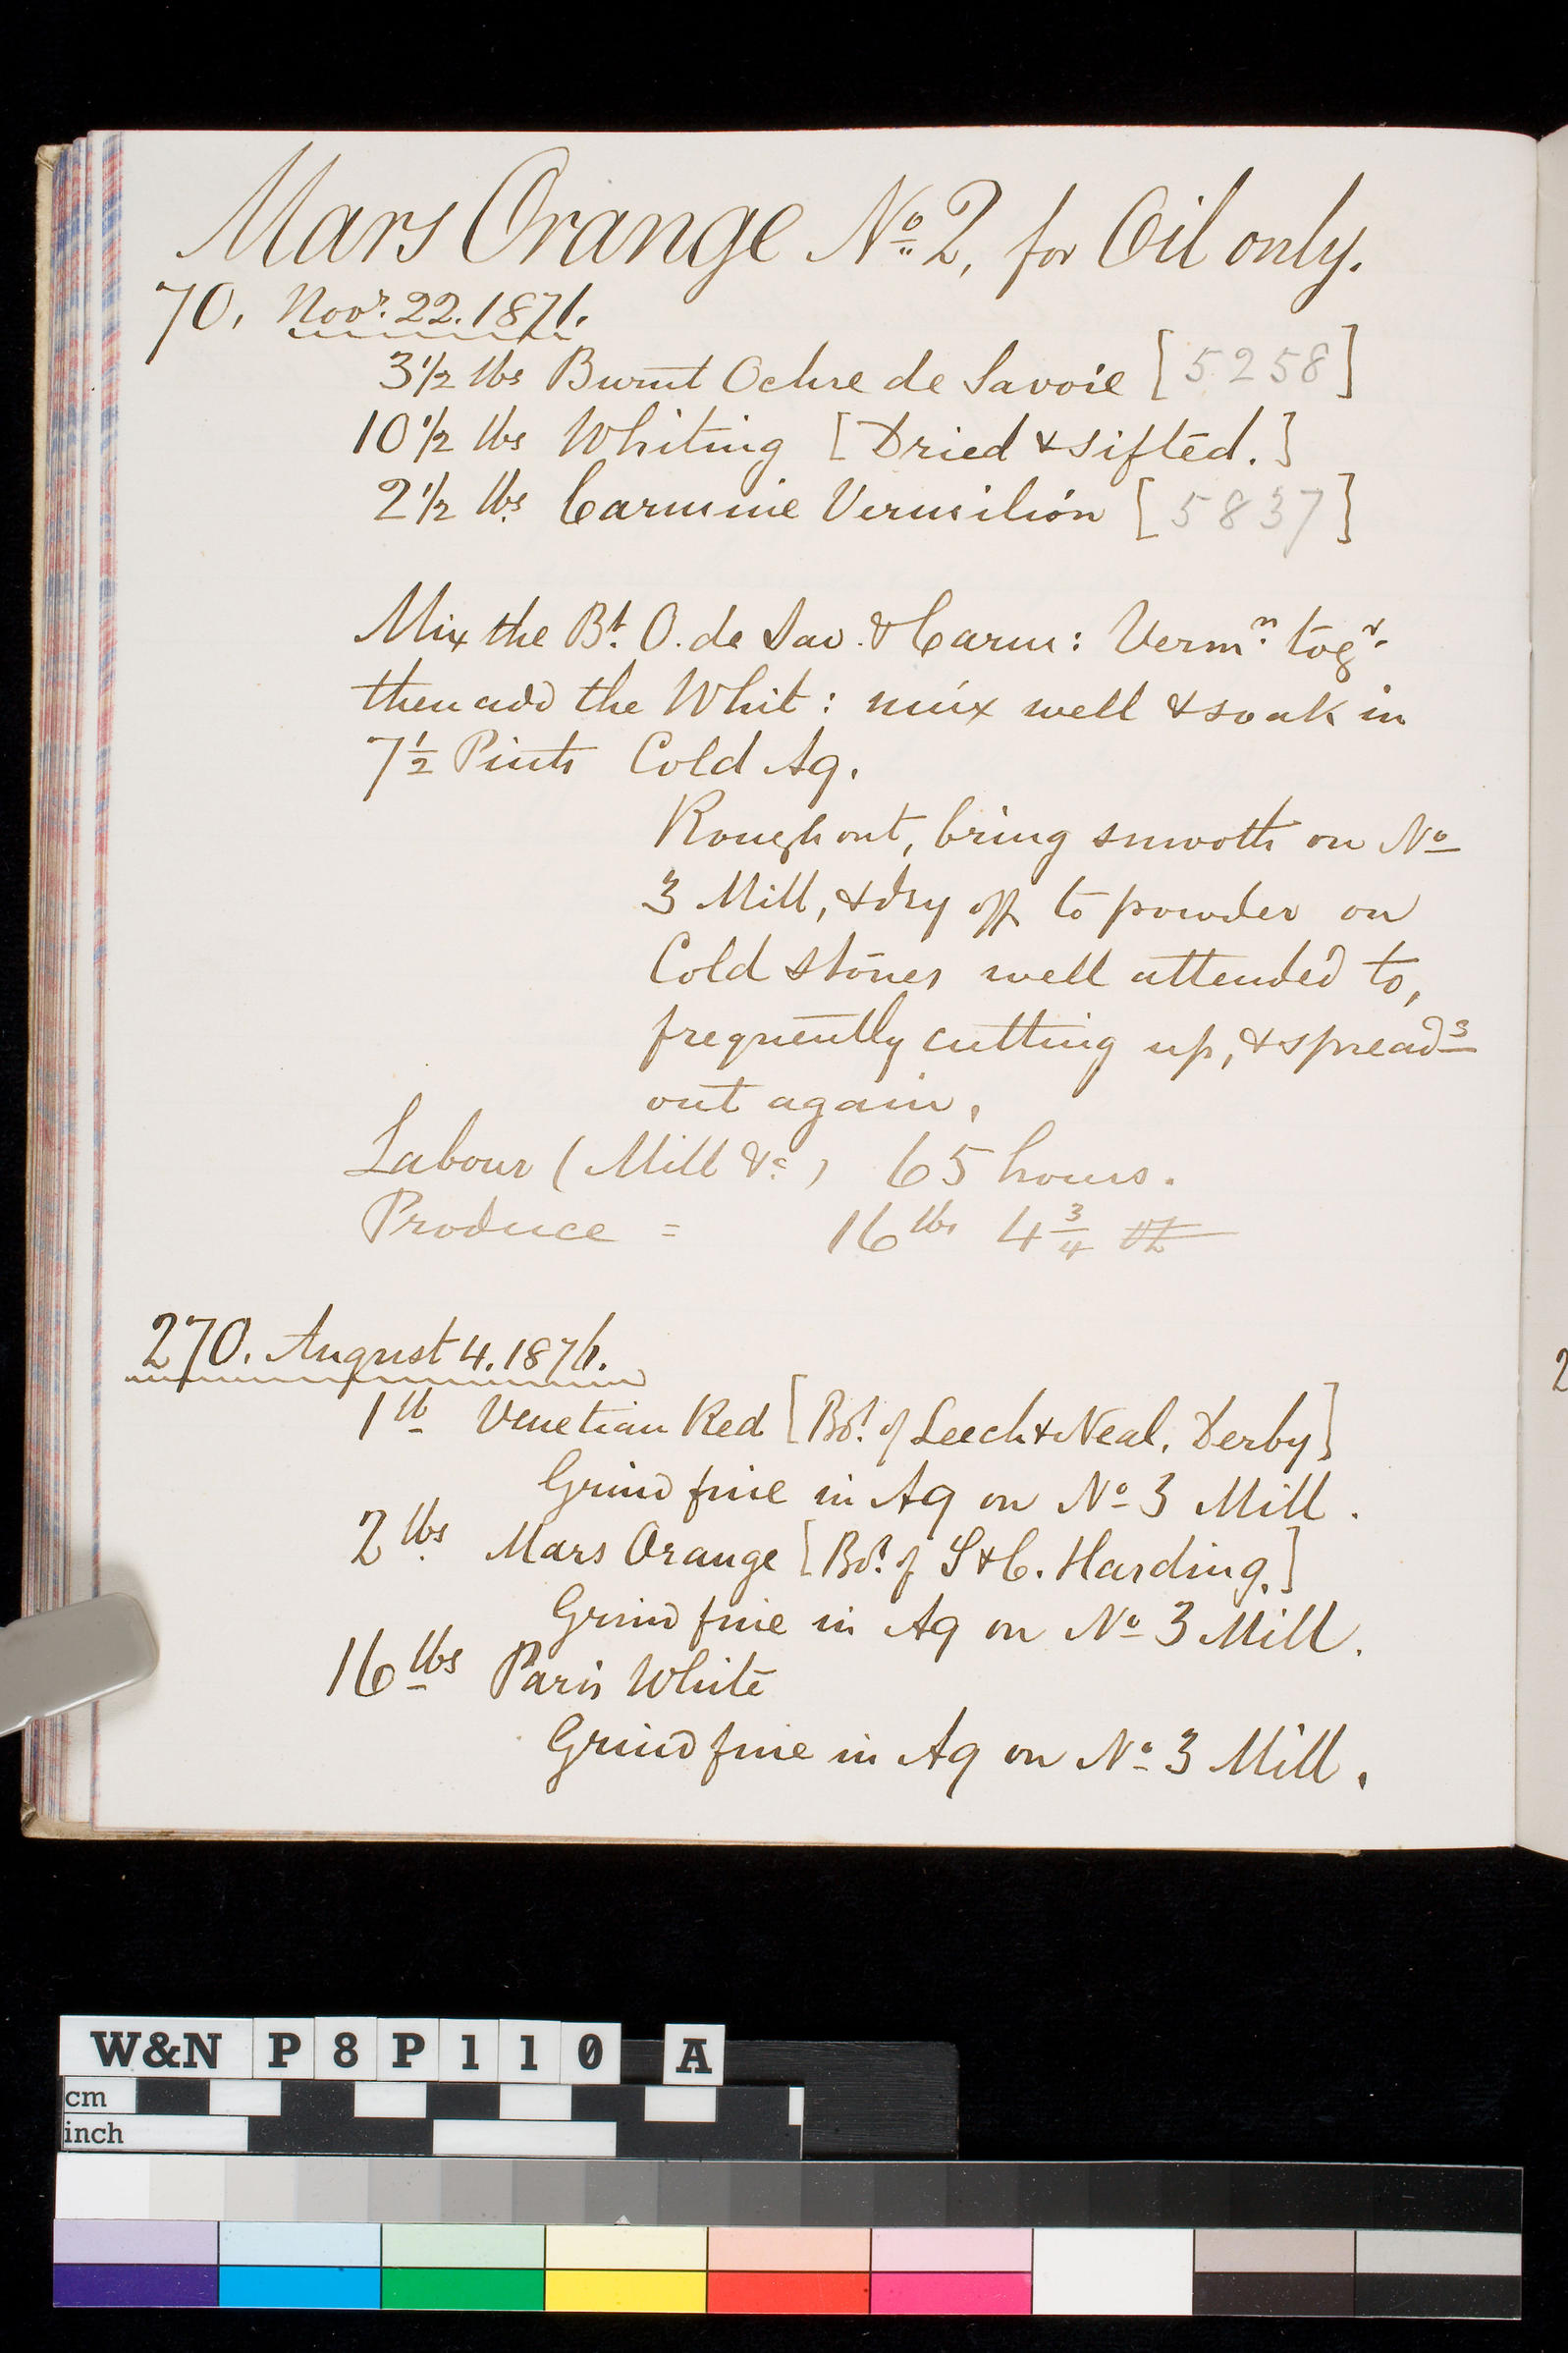 Mars Orange No. 2, for Oil only.
70. Novr. 22. 1871.
3 1/2 lbs Burnt Ochre de Savoie [5258]
10 1/2 lbs Whiting [Dried & sifted.]
2 1/2 lbs. Carmine Vermilion [5837]
Mix the Bt. O. de Sav. & Carm: Vermn. togr.
then add the Whit: mix well & soak in
7 1/2 Pints Cold Aq.
Rough out, bring smooth on No
3 Mill, & dry off to powder on
Cold stones well attended to,
frequently cutting up, & spreadg
out again.
Labour (Mill &c.) 65 hours.
Produce = 16 lbs 4 3/4 oz
270. August 4. 1876.
1 lb Venetian Red [Bot. of Leech & Neal, Derby]
Grind fine in Aq on No 3 Mill.
2 lbs. Mars Orange [Bot. of S & C. Harding.]
Grind fine in Aq on No 3 Mill.
16 lbs Paris White
Grind fine in Aq on No 3 Mill.
2
W&N P8P110 A
cm
inch